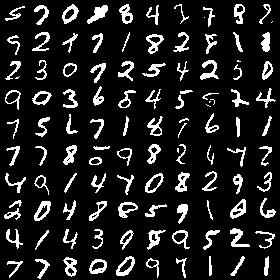 5 7 0 8 4 7 8 2
9 2 1 7 1 8 2 8 1 8
2 3 0 7 2 5 4 2 5 0
9 0 3 6 8 4 5 5 2 4
7 5 L 7 1 8 9 6 1 1
7 7 8 5 9 8 2 4 7 2
4 9 1 4 4 0 8 2 9 3
2 0 4 8 8 5 9 1 8 6
4 1 4 3 9 8 9 5 2 3
7 7 8 0 0 9 7 1 1 1